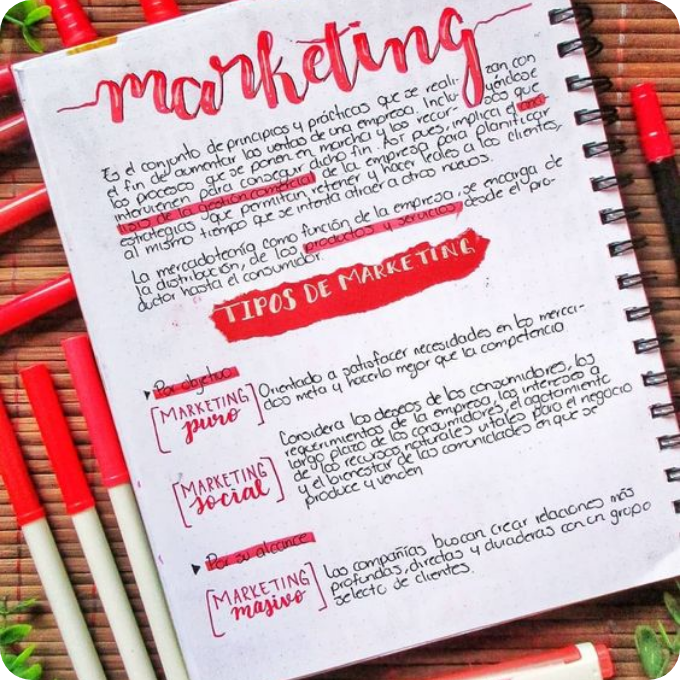 marketing
Es el conjunto de principios y prácticas que se reali- zan con
el fin del aumentar las ventas de una empresa. Inclu- yéndose
los procesos que se ponen en marcha y los recur- sos que
intervienen para conseguir dicho fin. Así pues, implica el aná-
lisis de la gestión comercial de la empresa para planificar
estrategias que permitan retener y hacer leales a los clientes,
al mismo tiempo que se intenta atraer a otros nuevos.
La mercadotecnia como función de la empresa, se encarga de
la distribución, de los productos y servicios, desde el pro-
ductor hasta el consumidor.
TIPOS DE MARKETING
Por objetivo
[MARKETING
puro]
Orientado a satisfacer necesidades en los merca-
dos meta y hacerlo mejor que la competencia
[MARKETING
social]
Considera los deseos de los consumidores, los
requerimientos de la empresa, los intereses a
largo plazo de los consumidores, el agotamiento
de los recursos naturales vitales para el negocio
y el bienestar de las comunidades en que se
produce y venden
Por su alcance
[MARKETING
masivo]
Las compañías buscan crear relaciones más
profundas, directas y duraderas con un grupo
selecto de clientes.